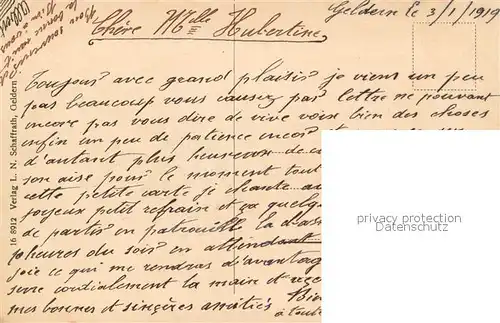 Geldern le 3/1/1919
Chère Mlle Hubertine
Toujours avec grand plaisir je viens un peu
pas beaucoup vous causez pas lettre ne pouvant
encore pas vous dire de vive voix bien des choses
enfin un peu de patience encor
d'autant plus heureux de
son aise pour le moment tout
cette petite carte je chante au
joyeux petit refrain et ça quelq
de partis en patrouille la d'ass
heures du soir en attendant
joie ce qui me rendras d'avantag
serre cordialement la main et reç
mes bonnes et singères amitiés Bien
à tout
16 8912 Verlag L. N. Schaffrath, Geldern
privacy protection
Datenschutz